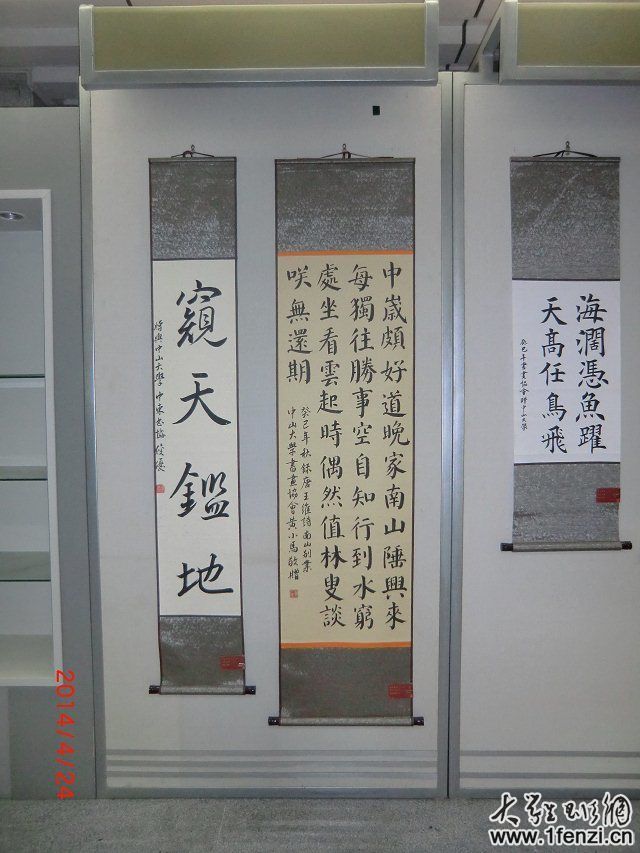 海濶憑魚躍
天高任鳥飛
癸巳年書畫協會贈中山大學
中歲頗好道晚家南山陲興來
每獨往勝事空自知行到水窮
處坐看雲起時偶然值林叟談
咲無還期
癸巳年秋錄唐王維詩南山別業
中山大學書畫協會黃小馬敬贈
窺天鑑地
中山大學
2014/4/24
www.1fenzi.cn